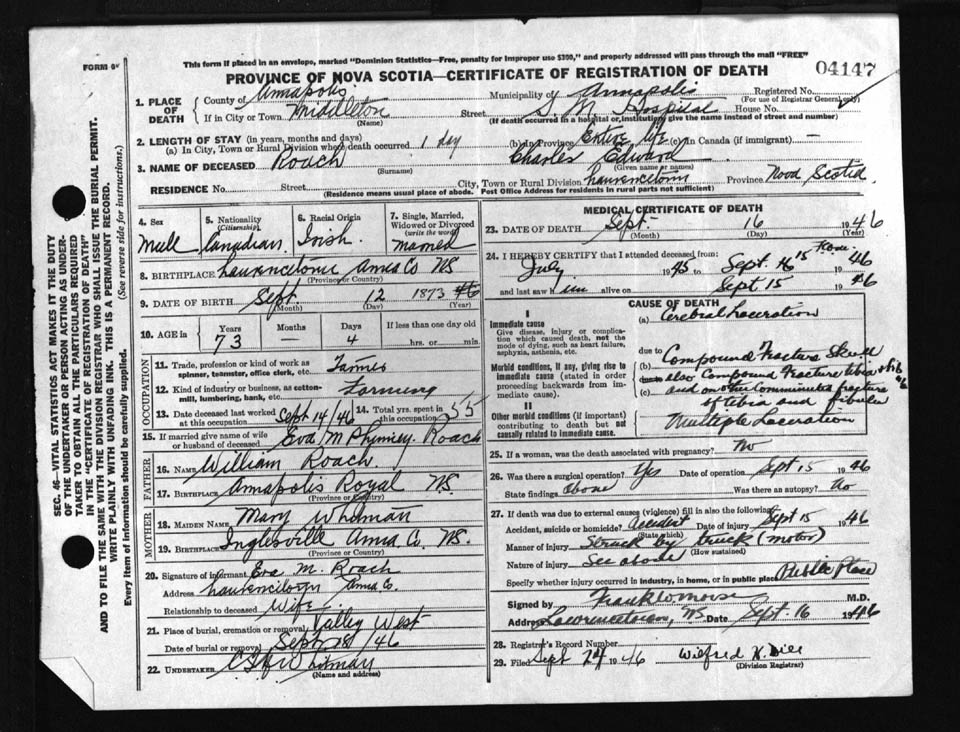 This form if placed in an envelope, marked "Dominion Statistics—Free, penalty for improper use $300," and properly addressed will pass through the mail "FREE"
FORM 6
PROVINCE OF NOVA SCOTIA—CERTIFICATE OF REGISTRATION OF DEATH
04147
1. PLACE OF DEATH
County of Annapolis
Municipality of Annapolis
Registered No.
(For use of Registrar General only)
If in City or Town Middleton
(Name)
Street S. M. Hospital House No.
(If death occurred in a hospital or institution, give the name instead of street and number)
2. LENGTH OF STAY (in years, months and days)
(a) In City, Town or Rural Division where death occurred 1 day (b) in Province Entire life (c) in Canada (if immigrant) —
3. NAME OF DECEASED Roach Charles Edward
(Surname) (Given name or names)
RESIDENCE No. Street City, Town or Rural Division Lawrencetown Province Nova Scotia
(Residence means usual place of abode. Post Office Address for residents in rural parts not sufficient)
4. Sex
Male
5. Nationality (Citizenship)
Canadian
6. Racial Origin
Irish
7. Single, Married, Widowed or Divorced (write the word)
Married
8. BIRTHPLACE Lawrencetown Anna Co NS
(Province or Country)
9. DATE OF BIRTH Sept. 12 1873 46
(Month) (Day) (Year)
10. AGE in
Years Months Days If less than one day old
73 — 4 hrs. or min.
OCCUPATION
11. Trade, profession or kind of work as spinner, teamster, office clerk, etc. Farmer
12. Kind of industry or business, as cotton-mill, lumbering, bank, etc. Farming
13. Date deceased last worked at this occupation Sept 14/46
14. Total yrs. spent in this occupation 55
15. If married give name of wife or husband of deceased Eva M Phinney Roach
FATHER
16. NAME William Roach
17. BIRTHPLACE Annapolis Royal NS.
(Province or Country)
MOTHER
18. MAIDEN NAME Mary Whitman
19. BIRTHPLACE Inglesville Anna Co. NS.
(Province or Country)
20. Signature of informant Eva M. Roach
Address Lawrencetown Anna Co.
Relationship to deceased Wife
21. Place of burial, cremation or removal Valley West
Date of burial or removal Sept 18/46
22. UNDERTAKER Whitman
(Name and address)
MEDICAL CERTIFICATE OF DEATH
23. DATE OF DEATH Sept. 16 1946
(Month) (Day) (Year)
24. I HEREBY CERTIFY that I attended deceased from
July 1945 to Sept. 16 1946
and last saw him alive on Sept 15 1946
CAUSE OF DEATH
I
Immediate cause
Give disease, injury or complication which caused death, not the mode of dying, such as heart failure, asphyxia, asthenia, etc.
Morbid conditions, if any, giving rise to immediate cause (stated in order proceeding backwards from immediate cause).
II
Other morbid conditions (if important) contributing to death but not causally related to immediate cause.
(a) Cerebral Laceration
due to
(b) Compound Fracture Skull
also Compound Fracture tibia
(c) and on other comminuted fracture
of tibia and fibula
Multiple Laceration
25. If a woman, was the death associated with pregnancy? No
26. Was there a surgical operation? Yes Date of operation Sept 15 1946
State findings Above Was there an autopsy? No
27. If death was due to external causes (violence) fill in also the following:
Accident, suicide or homicide? Accident Date of injury Sept 15 1946
(State which)
Manner of injury Struck by truck (motor)
(How sustained)
Nature of injury See above
Specify whether injury occurred in industry, in home, or in public place Public Place
Signed by Frank Morse M.D.
Address Lawrencetown, NS Date Sept. 16 1946
28. Registrar's Record Number
29. Filed Sept 24 1946 Wilfred K. Dill
(Division Registrar)
SEC. 46—VITAL STATISTICS ACT MAKES IT THE DUTY
OF THE UNDERTAKER OR PERSON ACTING AS UNDER-
TAKER TO OBTAIN ALL THE PARTICULARS REQUIRED
IN THE "CERTIFICATE OF REGISTRATION OF DEATH"
AND TO FILE THE SAME WITH THE DIVISION REGISTRAR WHO SHALL ISSUE THE BURIAL PERMIT.
WRITE PLAINLY WITH UNFADING INK. THIS IS A PERMANENT RECORD.
Every item of information should be carefully supplied. (See reverse side for instructions.)